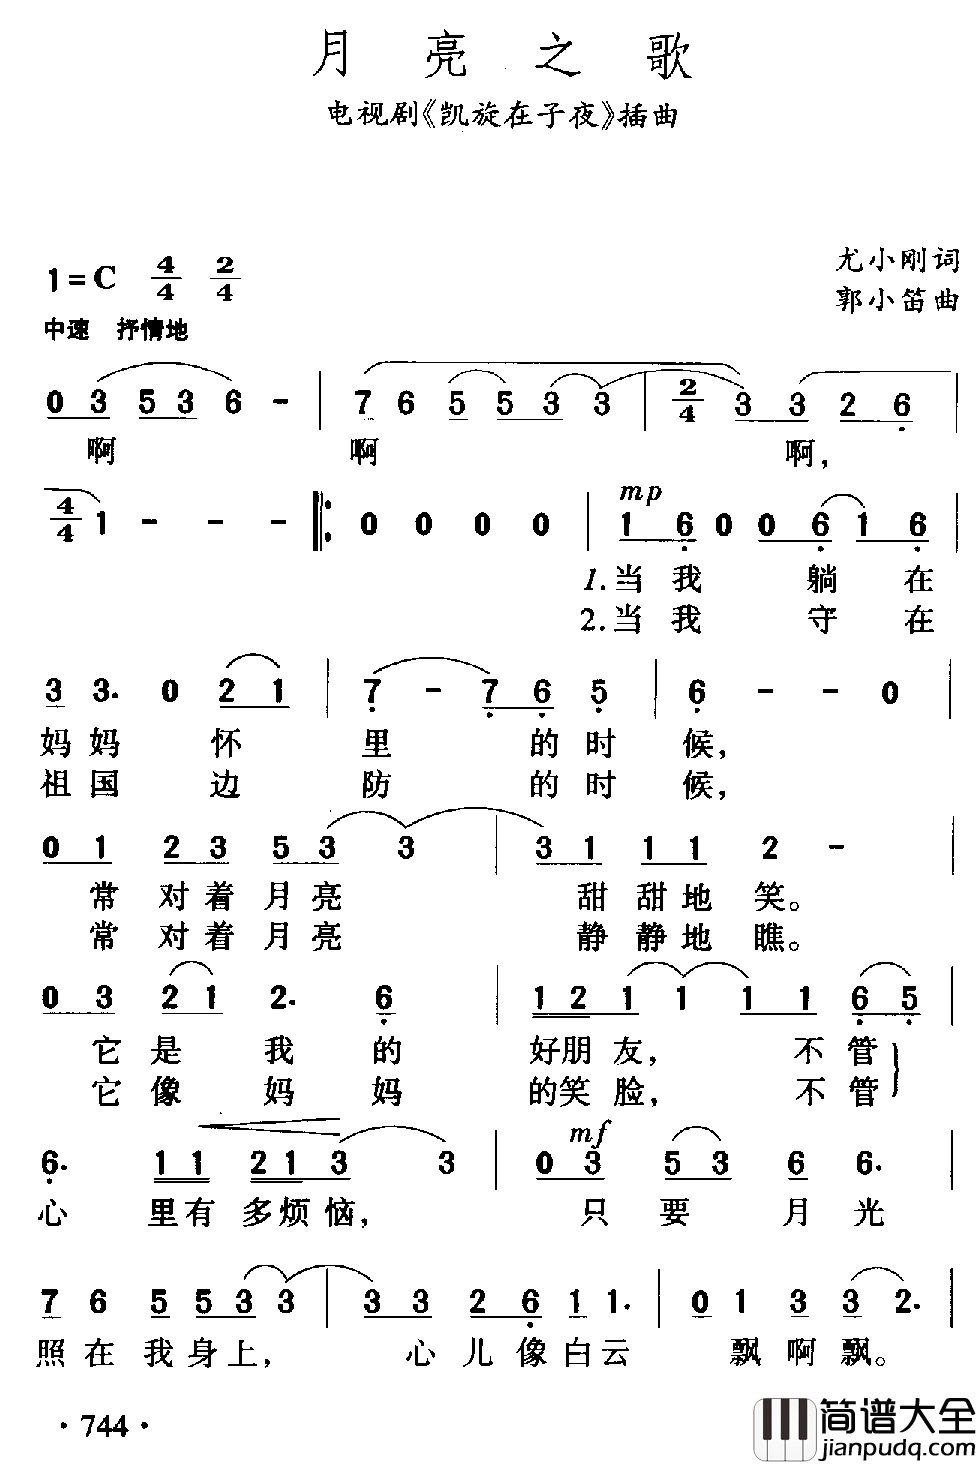 月亮之歌
电视剧《凯旋在子夜》插曲
1=C 4/4 2/4
尤小刚词
郭小笛曲
中速 抒情地
0 3 5 3 6 - | 7 6 5 5 3 3 | 2/4 3 3 2 6 |
啊 啊 啊,
4/4 1 - - - |: 0 0 0 0 | mp 1 6 0 0 6 1 6 |
1.当我 躺 在
2.当我 守 在
3 3. 0 2 1 | 7 - 7 6 5 | 6 - - 0 |
妈妈 怀 里 的时 候,
祖国 边 防 的时 候,
0 1 2 3 5 3 3 | 3 1 1 1 2 - |
常 对着月亮 甜 甜地 笑。
常 对着月亮 静 静地 瞧。
0 3 2 1 2. 6 | 1 2 1 1 1 1 6 5 |
它 是 我 的 好朋 友, 不 管
它 像 妈 妈 的笑 脸, 不 管
6. 1 1 2 1 3 3 | mf 0 3 5 3 6 6. |
心 里有 多烦恼, 只 要 月 光
7 6 5 5 3 3 | 3 3 2 6 1 1. | 0 1 3 3 2. |
照在 我身上, 心儿像白云 飘啊飘。
·744·
简谱大全
jianpudq.com